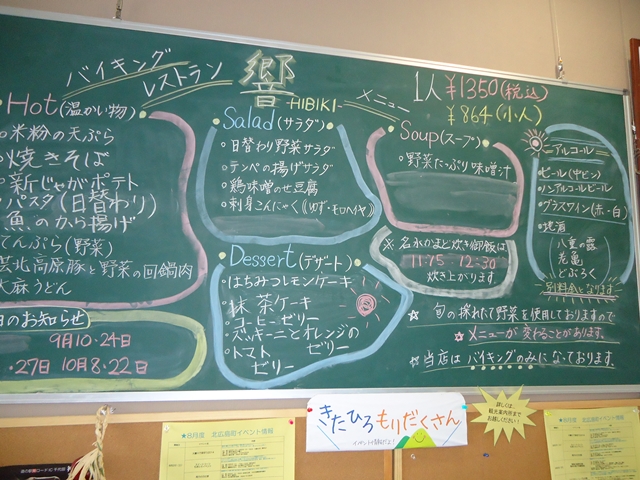 バイキング
レストラン
響
-HIBIKI-
メニュー
1人 ¥1350(税込)
¥864(小人)
Hot(温かい物)
・米粉の天ぷら
・焼きそば
・新じゃがポテト
・パスタ(日替わり)
魚のから揚げ
てんぷら(野菜)
芸北高原豚と野菜の回鍋肉
大麻うどん
Salad(サラダ)
・日替わり野菜サラダ
・テンペの揚げサラダ
・鶏味噌のせ豆腐
・刺身こんにゃく《ゆず・モロヘイヤ》
Soup(スープ)
・野菜たっぷり味噌汁
※名水かまど炊き御飯は
11:15 12:30
炊き上がります。
Dessert(デザート)
・はちみつレモンケーキ
・抹茶ケーキ
・コーヒーゼリー
・ズッキーニとオレンジの
ゼリー
・トマト
ゼリー
アルコール
・ビール(中ビン)
・ノンアルコールビール
・グラスワイン(赤・白)
・地酒
八重の露
老亀
どぶろく
別料金となります
☆旬の採れたて野菜を使用しておりますので
メニューが変わることがあります。
☆当店はバイキングのみになっております。
のお知らせ
9月10・24日
・27日 10月8・22日
きたひろもりだくさん
詳しくは、
観光案内所まで
お越しください!
★8月度 北広島町イベント情報